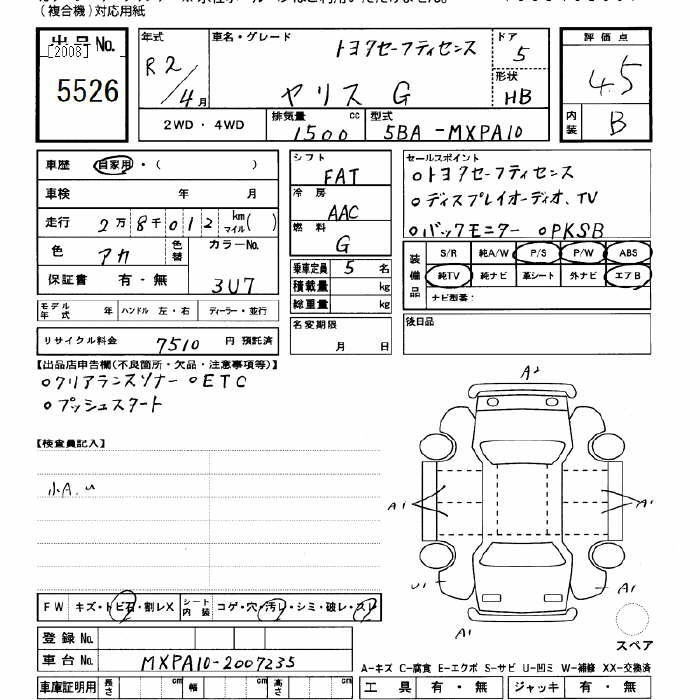 (複合機)対応用紙
出品No.
[2008]
5526
年式
R2/4月
車名・グレード
トヨタセーフティセンス
ヤリス G
ドア
5
形状
HB
2WD・4WD
排気量 cc
1500
型式
5BA-MXPA10
評価点
4.5
内装
B
車歴 自家用・( )
車検 年 月
走行 2万8千012km マイル( )
色 アカ 色替
カラーNo.
3U7
保証書 有・無
モデル年式 年 ハンドル 左・右 ディーラー・並行
リサイクル料金 7510 円 預託済
シフト
FAT
冷房
AAC
燃料
G
乗車定員 5 名
積載量 kg
総重量 kg
名変期限
月 日
セールスポイント
○トヨタセーフティセンス
○ディスプレイオーディオ、TV
○バックモニター ○PKSB
装備品
S/R 純A/W P/S P/W ABS
純TV 純ナビ 革シート 外ナビ エアB
ナビ型番:
後日品
【出品店申告欄(不良箇所・欠品・注意事項等)】
○クリアランスソナー ○ETC
○プッシュスタート
【検査員記入】
小A.U
A2
A1
A1
U1
A1
A1
スペア
FW キズ・トビ石・割レX
シート内装 コゲ・穴・汚レ・シミ・破レ・スレ
登録No.
車台No. MXPA10-2007235
車庫証明用 長さ cm 幅 cm 高さ cm
A-キズ C-腐食 E-エクボ S-サビ U-凹ミ W-補修 XX-交換済
工具 有・無 ジャッキ 有・無